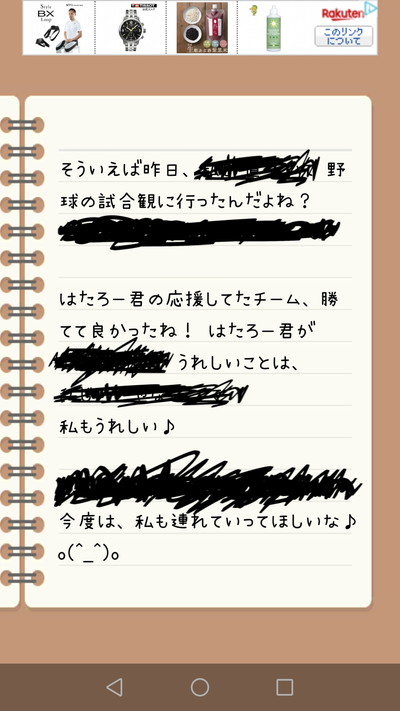 Style
BX
TISSOT
Rakuten
このリンク
について
そういえば昨日、 野
球の試合観に行ったんだよね？
はたろー君の応援してたチーム、勝
てて良かったね！ はたろー君が
うれしいことは、
私もうれしい♪
今度は、私も連れていってほしいな♪
o(^_^)o